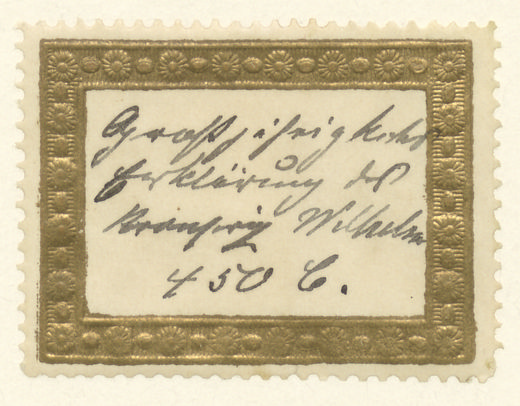 Großjährigkeits
Erklärung des
Wilhelm
450 C.